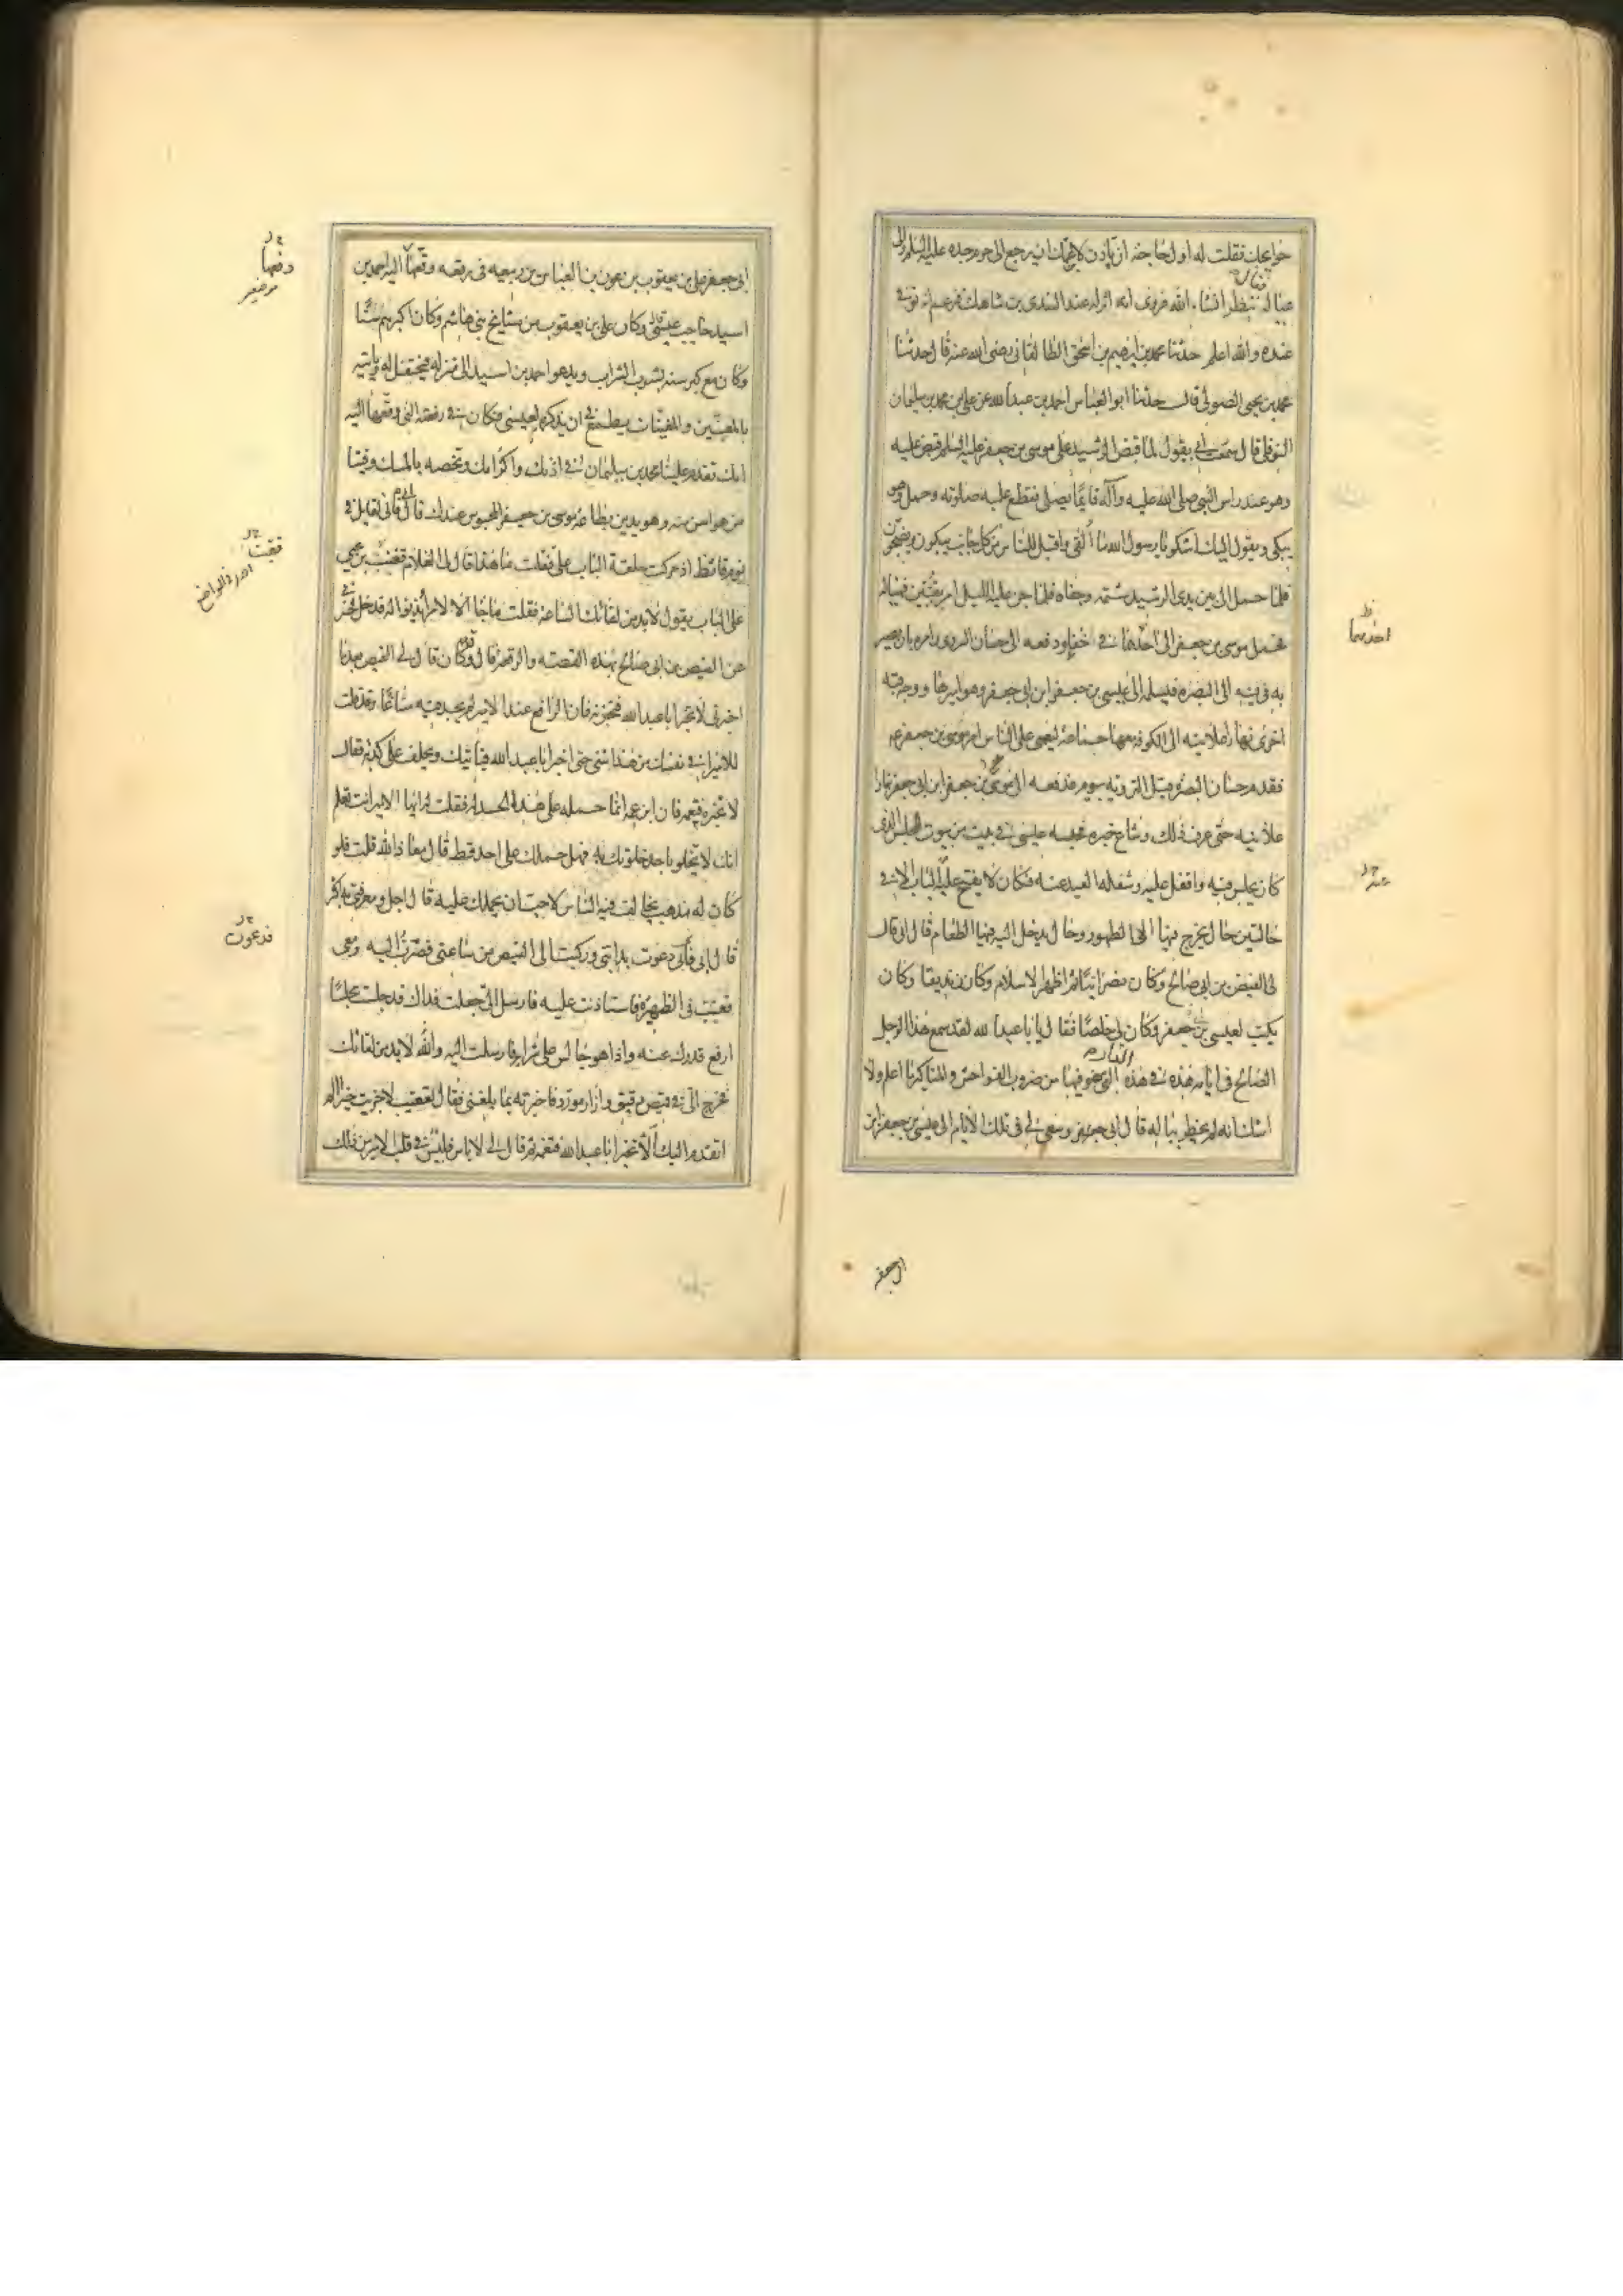 حوائجك فقلت له اول حاجة ان تأذن لابن عمك ان يرجع الى حرم جده عليه السلم والى
عياله فقال ننظر انشاء الله فروى انه انزله عند السندى بن شاهك فزعم انه توفى
عنده والله اعلم حدثنا محمد بن ابرهيم بن اسحق الطالقانى رضى الله عنه قال حدثنا
محمد بن يحيى الصولى قال حدثنا ابو العباس احمد بن عبد الله عن على بن محمد بن سليمان
النوفلى قال سمعت ابى يقول لما قبض الرشيد على موسى بن جعفر عليه السلم قبض عليه
وهو عند راس النبى صلى الله عليه وآله قايما يصلى فقطع عليه صلوته وحمل وهو
يبكى ويقول اليك اشكو يا رسول الله ما ألقى واقبل الناس من كل جانب يبكون ويضجون
فلما حمل الى بين يدى الرشيد شتمه وجفاه فلما جن عليه الليل امر بقبتين فهيئا له
فحمل موسى بن جعفر الى احدهما فى خفاء ودفعه الى حسان السروى وامره بان يصير
به فى قبة الى البصرة فيسلمه الى عيسى بن جعفر ابن ابى جعفر وهو اميرها ووجه قبة
اخرى نهارا علانية الى الكوفة معها جماعة ليعمى على الناس امر موسى بن جعفر ع
فقدم حسان البصرة قبل التروية بيوم فدفعه الى عيسى بن جعفر ابن ابى جعفر نهارا
علانية حتى عرف ذلك وشاع خبره فحبسه عيسى فى بيت من بيوت المجلس الذى
كان يجلس فيه واقفل عليه وشغله العيد عنه فكان لا يفتح عليه الباب الا فى
حالتين حال يخرج فيها الى الطهور وحال يدخل اليه فيها الطعام قال ابى قال
لى الفيض بن ابى صالح وكان نصرانيا ثم اظهر الاسلام وكان زنديقا وكان
يكتب لعيسى بن جعفر وكان بى خاصا فقال يا ابا عبد الله لقد سمع هذا الرجل
الصالح فى ايامه هذه فى هذه الدار التى هو فيها من ضروب الفواحش والمناكير ما اعلم ولا
اشك انه لم يخطر بباله قال ابى وسعى بى فى تلك الايام الى عيسى بن جعفر ابن
احديهما
ابى جعفر
ابى جعفر على بن يعقوب بن عون بن العباس بن ربيعه فى رقعة دفعها اليه احمد بن
اسيد حاجب عيسى قال وكان على بن يعقوب من مشايخ بنى هاشم وكان اكبرهم سنا
وكان مع كبر سنه يشرب الشراب ويدعو احمد بن اسيد الى منزله فيحتفل له ويأتيه
بالمغنين والمغنيات يطمع فى ان يذكره لعيسى فكان فى رقعته التى دفعها اليه
انك تقدم علينا محمد بن سليمان فى اذنك واكرامك وتخصه بالمسك وفينا
من هو اسن منه وهو يدين بطاعة موسى بن جعفر المحبوس عندك قال ابى فانى لقايل فى
يوم قائظ اذ حركت حلقة الباب على فقلت ما هذا قال لى الغلام قعنب بن يحيى
على الباب يقول لا بد من لقائك الساعة فقلت ما جاء الا لامر ائذنوا له فدخل فخبرنى
عن الفيض بن ابى صالح بهذه القصة والرقعة قال وقد كان قال لى الفيض بعد ما
اخبرنى لا تخبر ابا عبد الله فتحزنه فان الرافع عند الامير لم يجد فيه مساغا وقد قلت
للامير أفى نفسك من هذا شىء حتى اخبر ابا عبد الله فيأتيك ويحلف على كذبه فقال
لا تخبره فتغمه فان ابن عمه انما حمله على هذا الحسد له فقلت له ايها الامير انت تعلم
انك لا تخلو باحد خلوتك به فهل حملك على احد قط قال معاذ الله قلت فلو
كان له مذهب يخالف فيه الناس لاحب ان يحملك عليه قال اجل ومعرفتى به اكثر
قال ابى دعوت بدابتى وركبت الى الفيض من ساعتى فصرت اليه ومعى
قعنب فى الظهيرة فاستاذنت عليه فارسل الى جعلت فداك قد جلست مجلسا
ارفع قدرك عنه واذا هو جالس على شرابه فارسلت اليه والله لا بد من لقائك
فخرج الى فى قميص رقيق وازار مورد فاخبرته بما بلغنى فقال لقعنب لا جزيت خيرا الم
اتقدم اليك ألا تخبر ابا عبد الله فتغمه ثم قال لى لا باس فليس فى قلب الامير من ذلك
دفعها
قعنب
فدعوت